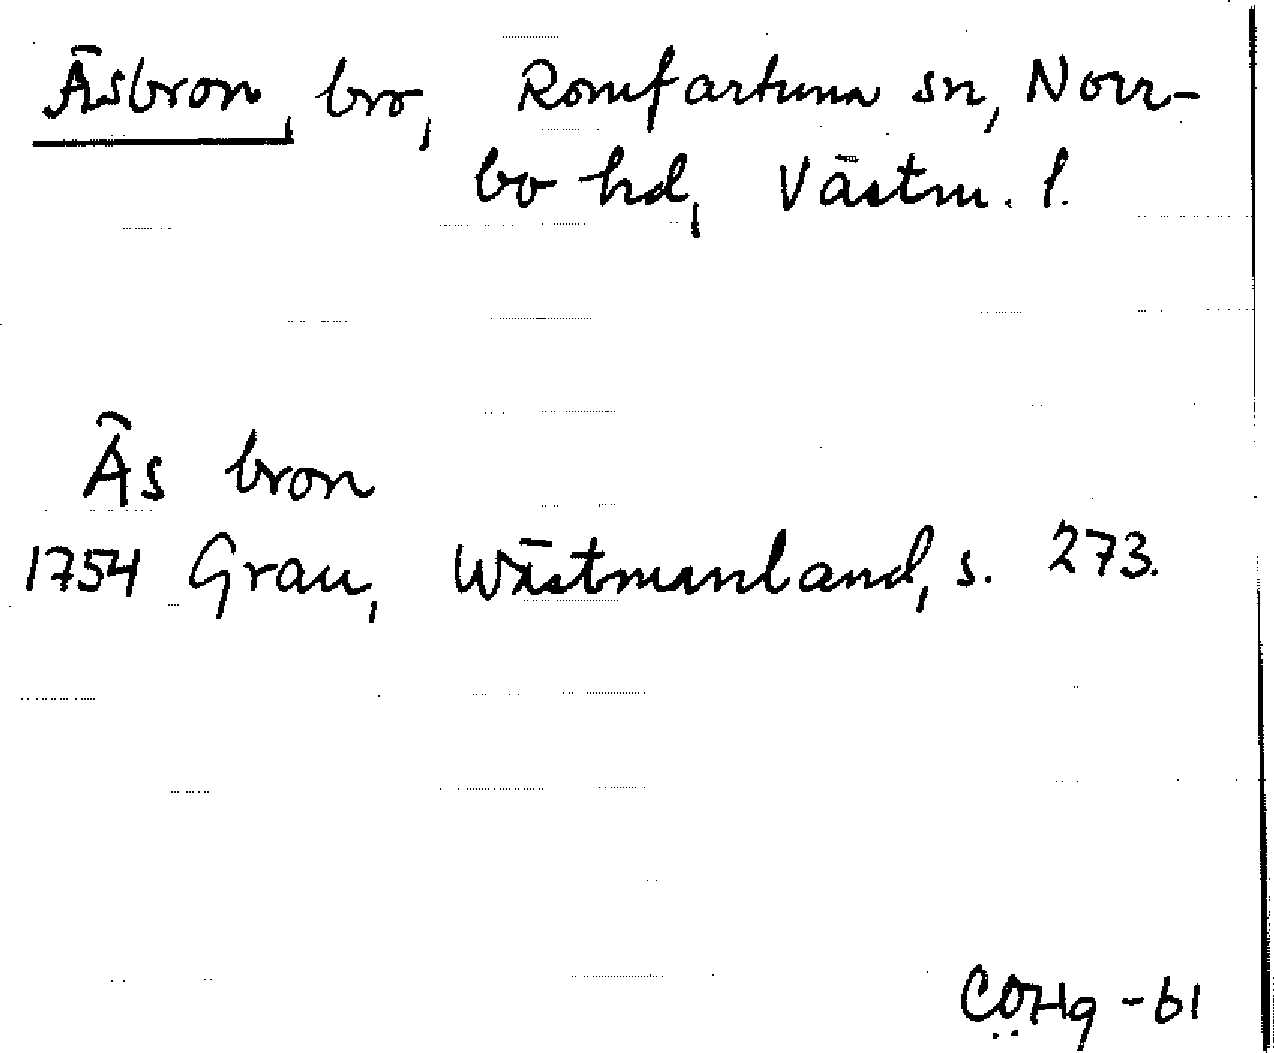 Åsbron, bro, Romfartuna sn, Norr-
bo hd, Västm. l.
Ås bron
1754 Grau, Wästmanland, s. 273.
CÖHg -61